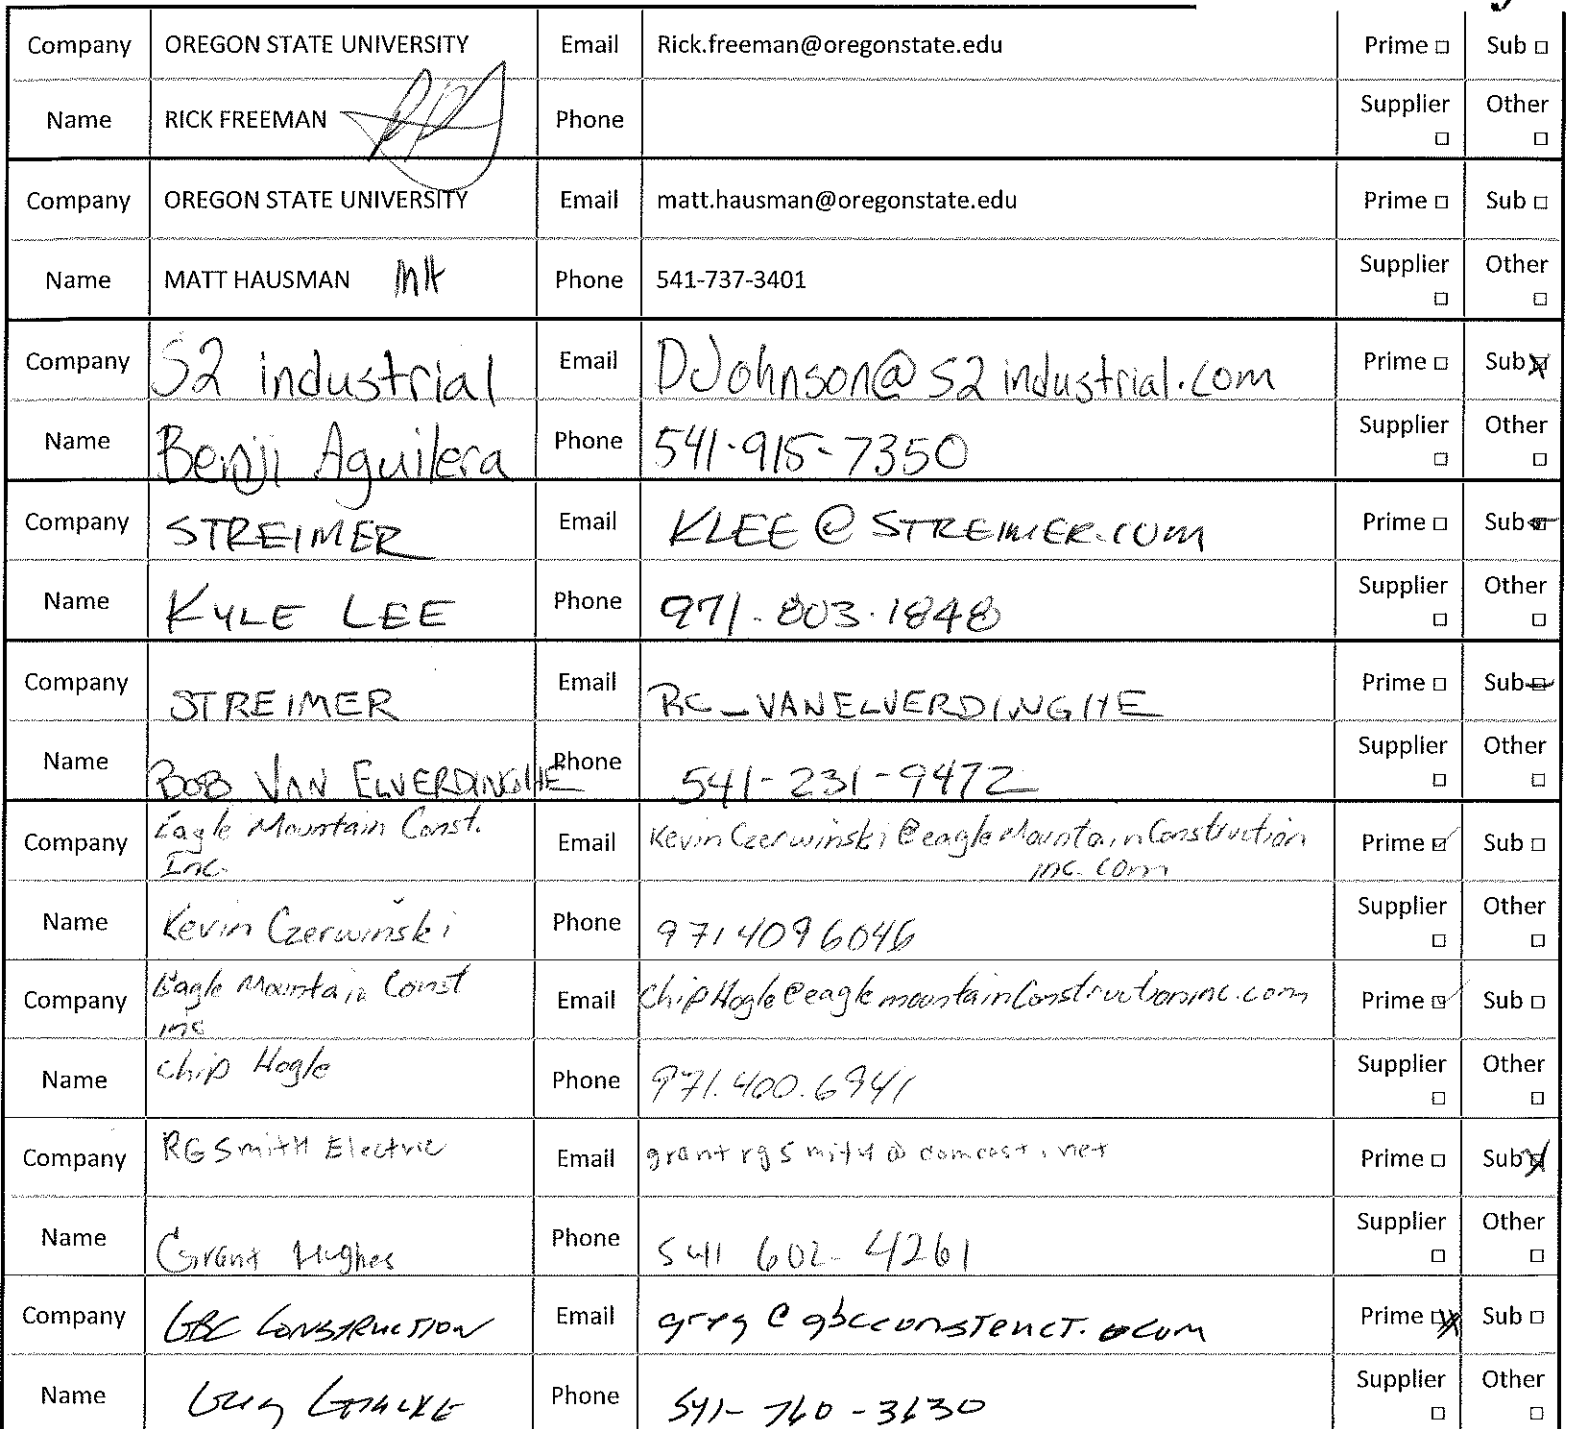 Company OREGON STATE UNIVERSITY Email Rick.freeman@oregonstate.edu Prime □ Sub □
Name RICK FREEMAN Phone Supplier □ Other □
Company OREGON STATE UNIVERSITY Email matt.hausman@oregonstate.edu Prime □ Sub □
Name MATT HAUSMAN MH Phone 541-737-3401 Supplier □ Other □
Company S2 industrial Email DJohnson@S2industrial.com Prime □ Sub ☒
Name Benji Aguilera Phone 541-915-7350 Supplier □ Other □
Company STREIMER Email KLEE@STREIMER.COM Prime □ Sub ☒
Name KYLE LEE Phone 971.803.1848 Supplier □ Other □
Company STREIMER Email RC_VANELVERDINGHE Prime □ Sub ☒
Name BOB VAN ELVERDINGHE Phone 541-231-9472 Supplier □ Other □
Company Eagle Mountain Const. Email KevinCzerwinski@eagleMountainConstruction Prime ☑ Sub □
Inc. inc.com
Name Kevin Czerwinski Phone 9714096046 Supplier □ Other □
Company Eagle Mountain Const Email ChipHogle@eaglemountainConstructioninc.com Prime ☑ Sub □
inc
Name Chip Hogle Phone 971.400.6941 Supplier □ Other □
Company RG SmitH Electric Email grantrgsmitH@comcast.net Prime □ Sub ☒
Name Grant Hughes Phone 541 602-4261 Supplier □ Other □
Company GBC CONSTRUCTION Email greg@gbcconstruct.com Prime ☒ Sub □
Name Phone 541-760-3630 Supplier □ Other □